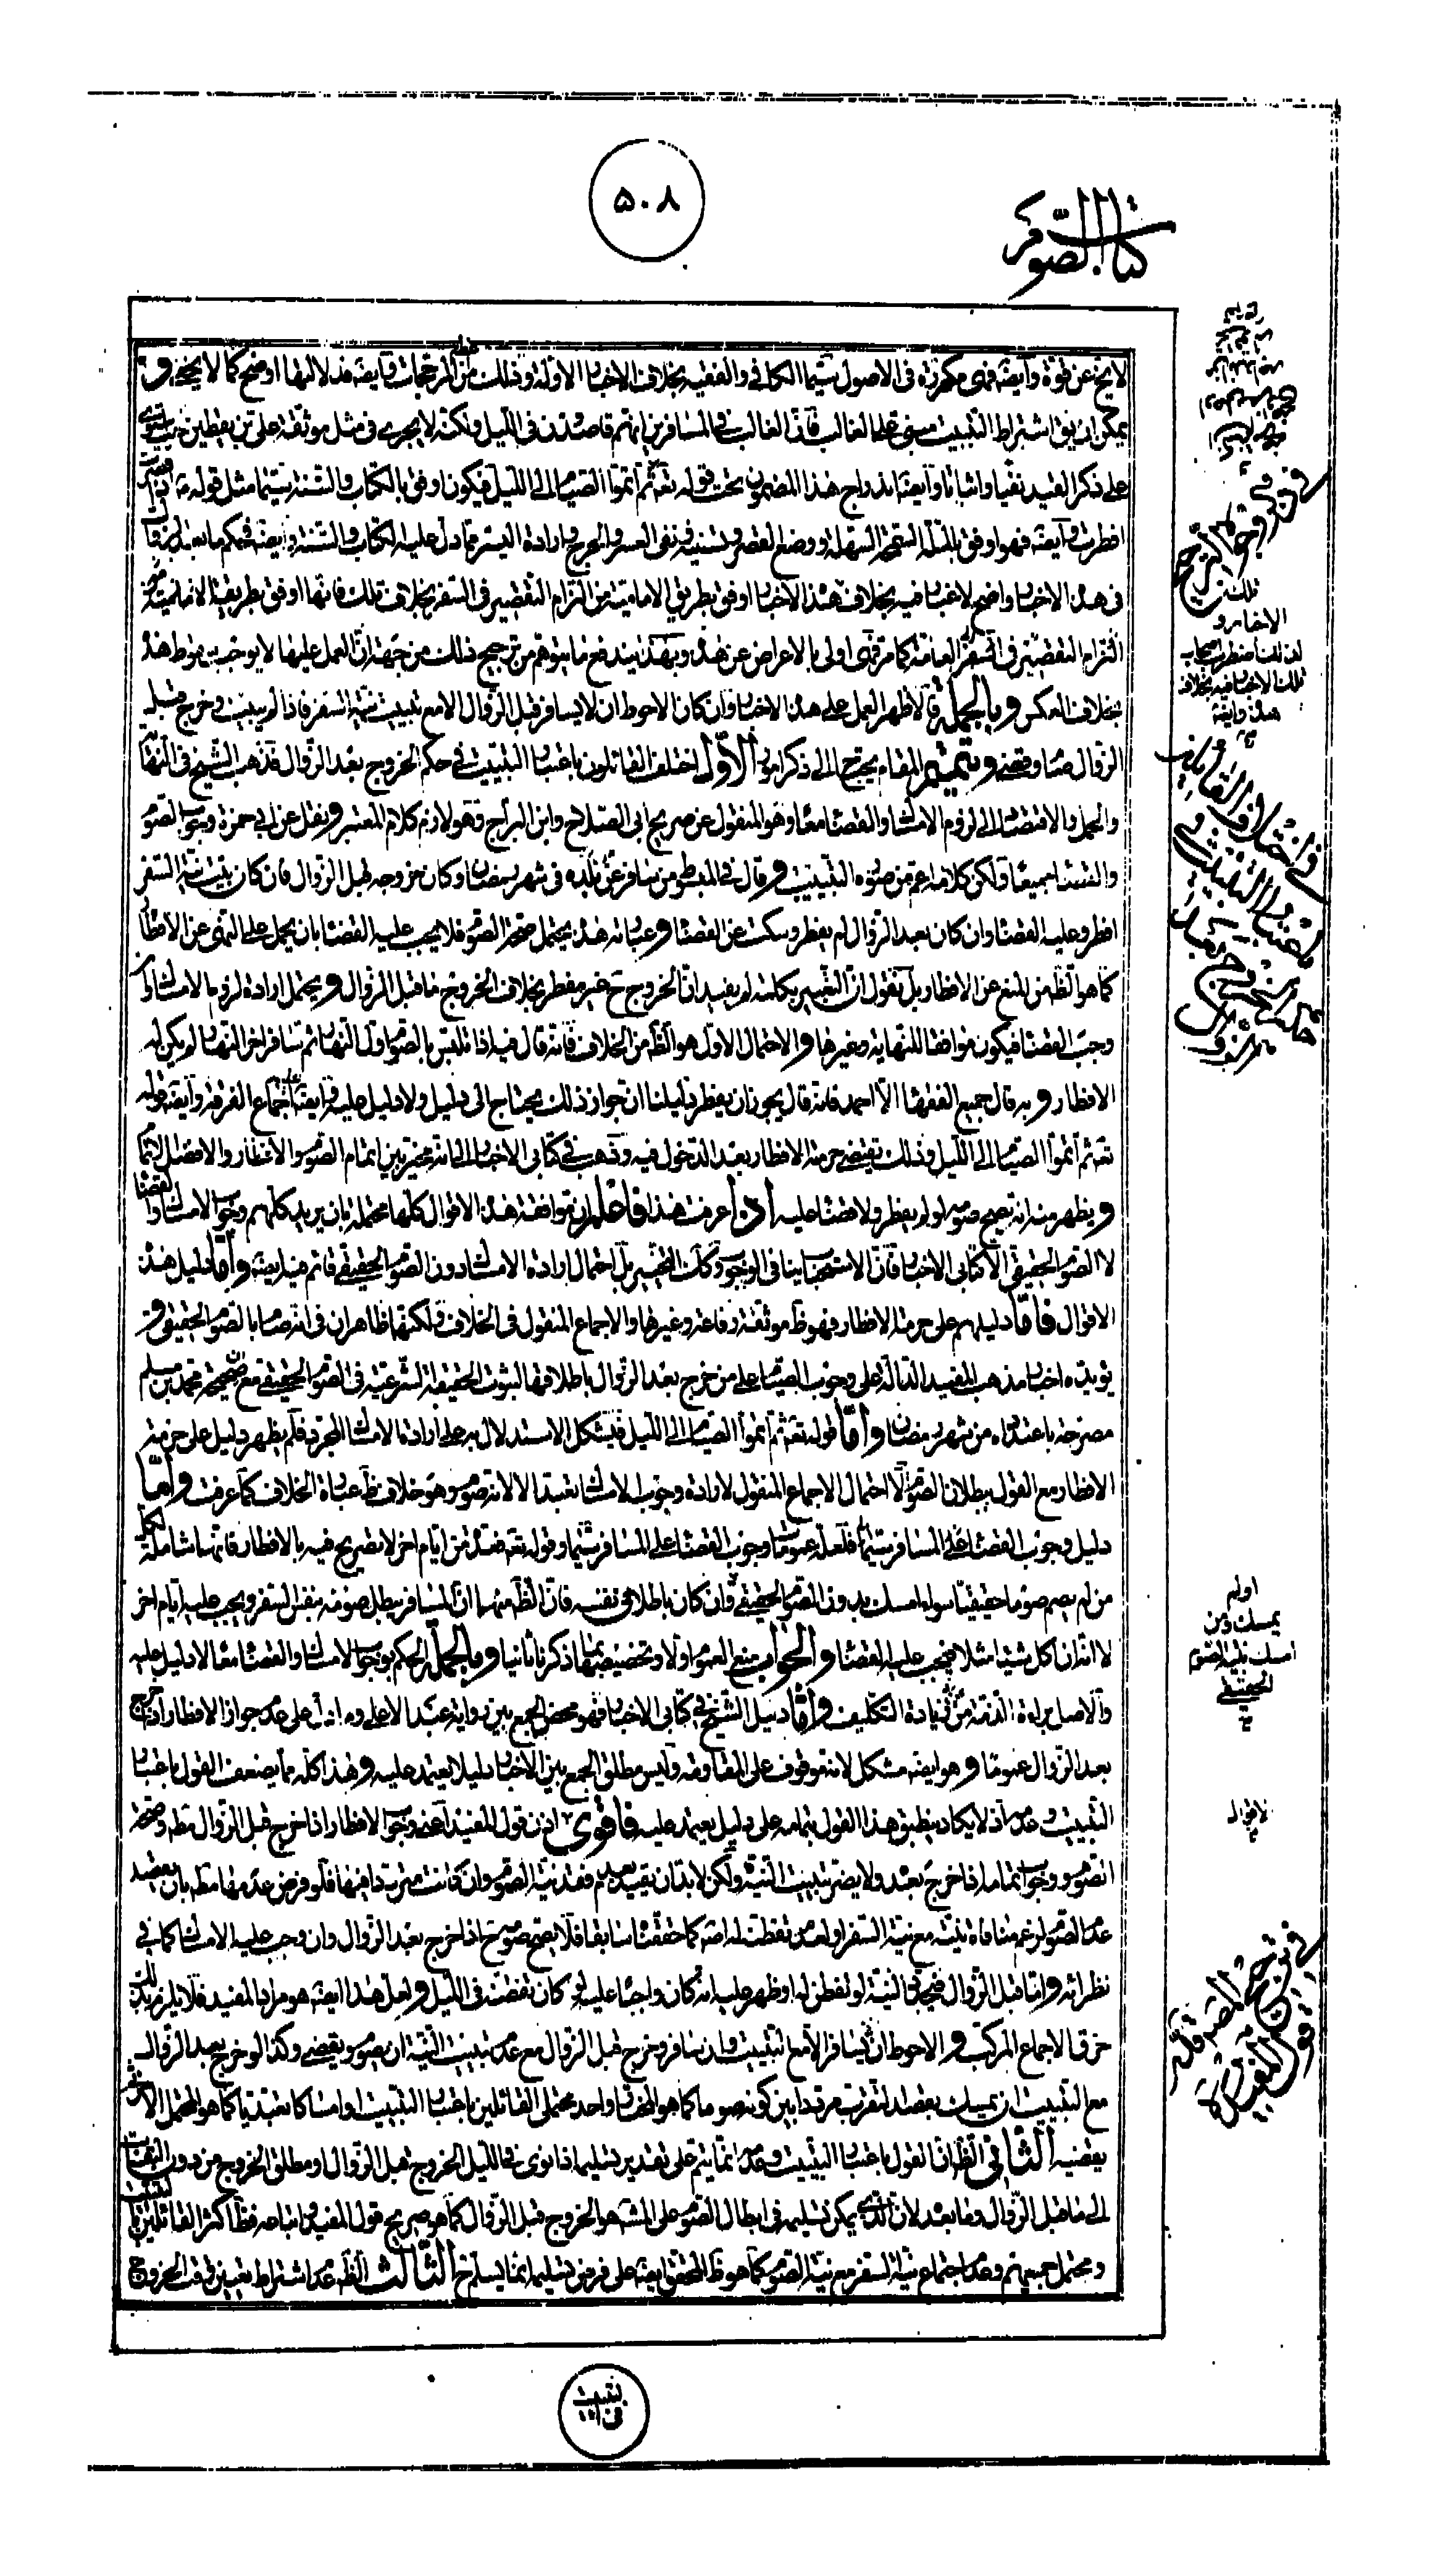 ۵۰۸
كتاب الصوم
لا يخ عن قوة وايضا فهى مكررة فى الاصول سيما الكافى والفقيه بخلاف الاخبار الاولة وذلك من المرجحات وايضا فدلالتها اوضح كما لا يخفى و
يمكن ان يق اشتراط التبييت مبنى على الغالب فان الغالب فى المسافرين انهم قاصدون فى الليل ولكنه لا يجرى فى مثل موثقة على بن يقطين
على ذكر القيد نفيا واثباتا وايضا اندراج هذا المضمون تحت قوله تعه ثم اتموا الصيام الى الليل فيكون اوفق بالكتاب والسنة سيما مثل قوله ع اذا قصرت
افطرت وايضا فهو اوفق بالملة السمحة السهلة ووضع القصر وسننه فى نفى العسر والحرج وارادة اليسر مما دل عليه الكتاب والسنة وايضا فحكم ما بعد الزوال
فى هذه الاخبار واضح لا غبار فيه بخلاف هذه الاخبار اوفق بطريق الامامية من التزام التقصير فى السفر بخلاف تلك فانها اوفق بطريقة
التزام التقصير فى السفر العامة كما مر فهى اولى بالاعراض عن هذه وبهذا يندفع ما يتوهم من ترجيح ذلك من جهة ان العمل عليها لا يوجب سقوط هذه
بخلاف العكس وبالجملة فالاظهر العمل على هذه الاخبار وان كان الاحوط ان لا يسافر قبل الزوال الا مع تبييت نية السفر فاذا لم يبيت وخرج قبل
الزوال صام وقضى وتتميم المقام يحتاج الى ذكر امور الاول اختلف القائلون باعتبار التبييت فى حكم الخروج بعد الزوال فذهب الشيخ فى النهاية
والجمل والاقتصاد الى لزوم الامساك والقضاء معا وهو المنقول عن صريح ابى الصلاح وابن البراج وهو لازم كلام المعتبر ونقل عن ابى حمزة وجوب الصوم
والقضاء جميعا ولكن كلامه اعم من صورة التبييت وقال فى المبسوط من سافر عن بلده فى شهر رمضان وكان خروجه قبل الزوال فان كان بيت نية السفر
افطر وعليه القضاء وان كان بعد الزوال لم يفطر وسكت عن القضاء وعبارته هذه يحتمل صحة الصوم فلا يجب عليه القضاء بان يحمل على النهى عن الافطار
كما هو الظ من المنع عن الافطار بل نقول ان التعبير بكلمة لم يفيد ان الخروج ح غير مفطر بخلاف الخروج ما قبل الزوال ويحتمل ارادة لزوم الامساك وان
وجب القضاء فيكون موافقا للنهاية وغيرها والاحتمال الاول هو الظ من الخلاف فانه قال فيه اذا تلبس بالصوم اول النهار ثم سافر اخر النهار لم يكن له
الافطار وبه قال جميع الفقهاء الا احمد فانه قال يجوز ان يفطر دليلنا ان جواز ذلك يحتاج الى دليل ولا دليل عليه وايضا اجماع الفرقة وايضا قوله
تعه ثم اتموا الصيام الى الليل وذلك يقتضى حرمة الافطار بعد الدخول فيه وذهب فى كتابى الاخبار الى انه مخير بين اتمام الصوم والافطار والافضل اتمام
ويظهر منه انه تصح صومه لو لم يفطر ولا قضاء عليه اذا عرفت هذا فاعلم ان موافقة هذه الاقوال كلها محتملة بان يريد كلهم وجوب الامساك والقضاء
لا الصوم الحقيقى الا كتابى الاخبار فان الاستحباب ينافى الوجوب وكذلك التخيير بل احتمال ارادة الامساك دون الصوم الحقيقى قائم فيه ايضا واما دليل هذه
الاقوال فاما دليلهم على حرمة الافطار فهو ظ موثقة رفاعة وغيرها والاجماع المنقول فى الخلاف ولكنها ظاهران فى انه صام بالصوم الحقيقى و
يؤيده اخبار مذهب المفيد الدالة على وجوب الصيام على من خرج بعد الزوال باطلاقها لثبوت الحقيقة الشرعية فى الصوم الحقيقى مع ان صحيحة محمد بن مسلم
مصرحة باعتداده من شهر رمضان واما قوله تعه ثم اتموا الصيام الى الليل فيشكل الاستدلال به على ارادة الامساك المجرد فلم يظهر دليل على حرمة
الافطار مع القول ببطلان الصوم الا احتمال الاجماع المنقول لارادة وجوب الامساك تعبدا لا لانه صوم وهو خلاف ظ عبارة الخلاف كما عرفت واما
دليل وجوب القضاء على المسافر سيما فلعله عمومات وجوب القضاء على المسافر سيما وقوله تعه فعدة من ايام اخر لا تصريح فيه بالافطار فانها شاملة لكل
من لم يصم صوما حقيقيا سواء امسك بدون الصوم الحقيقى وان كان باطلا فى نفسه فان الظ منهما ان المسافر يبطل صومه بنفس السفر ويجب عليه ايام اخر
لا انه ان اكل شيئا مثلا فيجب عليه القضاء والجواب منع العموم اولا وتخصيصها بما ذكرنا ثانيا وبالجملة الحكم بوجوب الامساك والقضاء معا لا دليل عليه
والاصل براءة الذمة من زيادة التكليف واما دليل الشيخ فى كتابى الاخبار فهو محض الجمع بين رواية عبد الاعلى وما دل على عدم جواز الافطار اذا خرج
بعد الزوال عموما وهو ايضا مشكل لانه موقوف على المقاومة وليس مطلق الجمع بين الاخبار دليلا يعتمد عليه وهذا كله مما يضعف القول باعتبار
التبييت وعدمه اذ لا يكاد ينطبق هذا القول بتمامه على دليل يعتمد عليه فاقوى اذن قول المفيد اعنى وجوب الافطار اذا خرج قبل الزوال مط وصحة
الصوم ووجوب اتمامه اذا خرج بعده ولا يضر تبييت النية ولكن لا بد ان يقيد بعدم فقد نية الصوم وان كانت مترددا فيها فلو فرض عدمها مط بان يقصد
عدم الصوم لزعم منافاة نيته مع نية السفر او لعدم تفطنه له اصلا كما حققناه سابقا فلا يصح صومه ح اذا خرج بعد الزوال وان وجب عليه الامساك كما فى
نظرائه واما قبل الزوال فيجزى النية لو تفطن له او ظهر عليه انه كان واجبا عليه لو كان تفطنه فى الليل ولعل هذا ايضا هو مراد المفيد فلا يلزم بذلك
خرق الاجماع المركب والاحوط ان لا يسافر الا مع التبييت وان سافر وخرج قبل الزوال مع عدم تبييت النية ان يصوم ويقضى وكذا لو خرج بعد الزوال
مع التبييت ان يمسك بقصد التقرب مرددا بين كونه صوما كما هو المختار واحد محتملى القائلين باعتبار التبييت او امساكا تعبديا كما هو المحتمل الاخر ثم
يقضيه الثانى الظ ان القول باعتبار التبييت وعدمه انما يتم على تقدير تسليمه اذا نوى فى الليل الخروج قبل الزوال او مطلق الخروج من دون التفات
الى ما قبل الزوال وما بعده لان الذى يمكن تسليمه فى ابطال الصوم على المش هو الخروج قبل الزوال كما هو صريح قول المفيد واتباعه فظ اكثر القائلين بالتبييت
ومحتمل جميعهم وعدم اجتماع نية السفر مع نية الصوم كما هو ظ المحقق ايضا على فرض تسليمه انما يسلم ح الثالث الظ عدم اشتراط تعيين وقت الخروج
فى ذكر وجوه الترجيح
تلك
الاخبار و
لذا اضطرب اصحاب
تلك الاخبار فيه بخلاف
هذه وايضا
فى اختلاف القائلين
باعتبار التبييت فى
حكم الخروج بعد
الزوال
او لم
يمسك ومن
امسك بنية الصوم
الحقيقى
الاقوال
فى ترجيح المصنف
قول المفيد